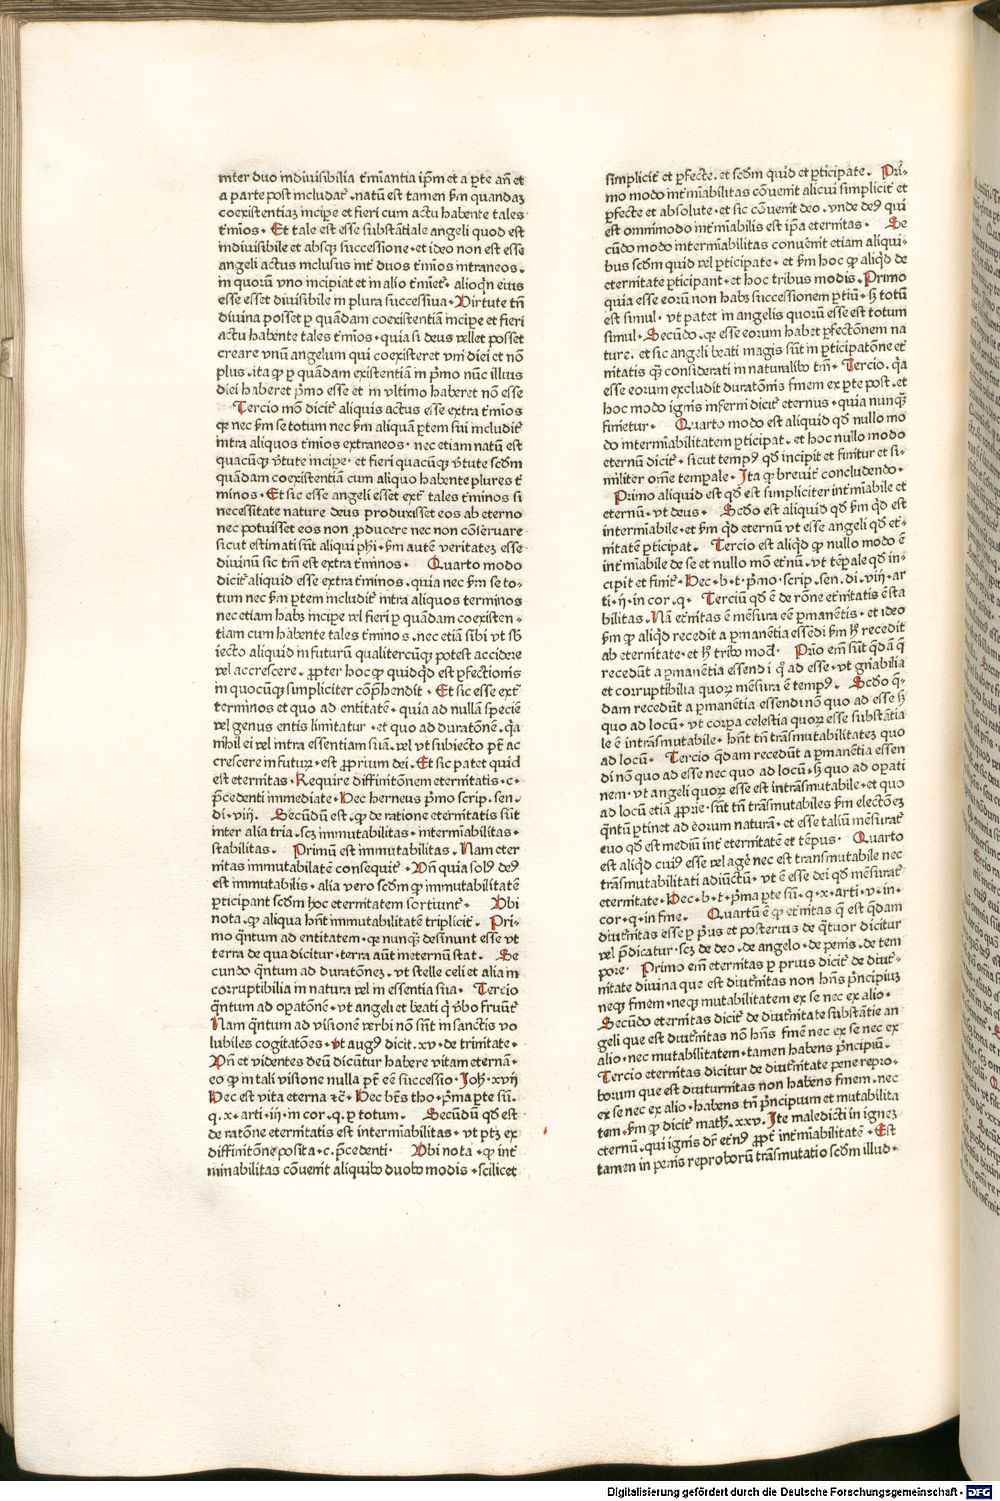 inter duo indiuisibilia t̄mīantia ip̄m et a ꝑte an̄ et
a parte post includat᷑ . natū est tamen ẜm quandaꝫ
coexistentiaꝫ incipe et fieri cum actu habente tales
t̄mīos . Et tale est esse substātiale angeli quod est
indiuisibile et absqꝫ successione . et ideo non est esse
angeli actus inclusus int̄ duos t̄mīos intraneos .
in quorū vno incipiat et in alio t̄miet᷑ . alioqn̄ eius
esse esset diuisibile in plura successiua . Virtute tn̄
diuina posset ꝑ quādam coexistentiā incipe et fieri
actu habente tales t̄mīos . quia si deus vellet posset
creare vnū angelum qui coexisteret vni diei et nō
plus . ita ꝙ ꝑ quādam existentiā in p̄mo nūc illius
diei haberet p̄mo esse et in vltimo haberet nō esse
Tercio mō dicit᷑ aliquis actus esse extra t̄mīos
qꝫ nec ẜm se totum nec ẜm aliquā ꝑtem sui includit᷑
intra aliquos t̄mīos extraneos . nec etiam natū est
quacūqꝫ v̄tute incipe . et fieri quacūqꝫ v̄tute scd̄m
quādam coexistentiā cum aliquo habente plures t̄
minos . Et sic esse angeli esset ext᷑ tales t̄minos si
necessitate nature deus produxisset eos ab eterno
nec potuisset eos non ꝓducere nec non cōseruare
sicut estimati sūt aliqui ph̄i . ẜm autē veritateꝫ esse
diuinū sic tm̄ est extra t̄minos . Quarto modo
dicit᷑ aliquid esse extra t̄minos . quia nec ẜm se to-
tum nec ẜm partem includit᷑ intra aliquos terminos
nec etiam habꝫ incipe vel fieri ꝑ quādam coexisten-
tiam cum habente tales t̄minos . nec etiā sibi vt sb̄
iecto aliquid in futurū qualitercūqꝫ potest accidere
vel accrescere . ꝓpter hoc ꝙ quidqd̄ est ꝑfectionis
in quocūqꝫ simpliciter cōp̄hendit . Et sic esse ext᷑
terminos et quo ad entitatē . quia ad nullā speciē
vel genus entis limitatur . et quo ad duratōnē . qꝛ
nihil ei vel intra essentiam suā . vel vt subiecto pt̄ ac
crescere in futurꝫ . est ꝓprium dei . Et sic patet quid
est eternitas . Require diffinitōnem eternitatis . c .
p̄cedenti immediate . Hec herueus p̄mo scrip . sen .
di . viij . Secūdū est . ꝙ de ratione eternitatis sūt
inter alia tria . scꝫ immutabilitas . intermīabilitas .
stabilitas . Primū est immutabilitas . Nam eter
nitas immutabilatē consequit᷑ . Vn̄ quia solꝰ deꝰ
est immutabilis . alia vero scd̄m ꝙ immutabilitatē
ꝑticipant scd̄m hoc eternitatem sortiunt᷑ . Vbi
nota . ꝙ aliqua hn̄t immutabilitatē triplicit᷑ . Pri-
mo qn̄tum ad entitatem . qꝫ nunqꝫ desinunt esse vt
terra de qua dicitur . terra aūt ineternū stat . Se
cundo qn̄tum ad duratōneꝫ . vt stelle celi et alia in
corruptibilia in natura vel in essentia sua . Tercio
qn̄tum ad oꝑatōnē . vt angeli et beati q̄ v̄bo fruūt᷑
Nam qn̄tum ad visionē verbi nō sūt in sanctis vo
lubiles cogitatōes . vt augꝰ dicit . xv . de trinitate .
Vn̄ et videntes deū dicūtur habere vitam eternā .
eo ꝙ in tali visione nulla pt̄ eē successio . Joh̄ . xvij
Hec est vita eterna ⁊c̄ . Hec b̄ts tho . p̄ma ꝑte sū .
q . x . arti . iij . in cor . q . ꝑ totum . Secūdū qd̄ est
de ratōne eternitatis est intermīabilitas . vt ptꝫ ex
diffinitōne posita . c . p̄cedenti . Vbi nota . ꝙ int᷑
minabilitas cōuenit aliquibꝰ duobꝰ modis . scilicet
simplicit᷑ et ꝑfecte . et scd̄m quid et ꝑticipate . Pri-
mo modo int᷑mīabilitas cōuenit alicui simplicit᷑ et
ꝑfecte et absolute . et sic cōuenit deo . vnde deꝰ qui
est omnimodo int᷑mīabilis est ip̄a eternitas . Se
cūdo modo intermīabilitas conuenit etiam aliqui-
bus scd̄m quid vel ꝑticipate . et ẜm hoc ꝙ aliqd̄ de
eternitate ꝑticipant . et hoc tribus modis . Primo
quia esse eorū non habꝫ successionem ꝑtiū . sꝫ totū
est simul . vt patet in angelis quorū esse est totum
simul . Secūdo . qꝛ esse eorum habet ꝑfectōnem na
ture . et sic angeli beati magis sūt in ꝑticipatōne et᷑
nitatis qꝫ considerati in naturalibꝰ tm̄ . Tercio . qꝛ
esse eorum excludit duratōnis finem ex ꝑte post . et
hoc modo ignis inferni dicit᷑ eternus . quia nunqꝫ
finietur . Quarto modo est aliquid qd̄ nullo mo
do intermīabilitatem ꝑticipat . et hoc nullo modo
eternū dicit᷑ . sicut tempꝰ qd̄ incipit et finitur et si-
militer om̄e temꝑale . Ita ꝙ breuit᷑ concludendo .
Primo aliquid est qd̄ est simpliciter int᷑mīabile et
eternū . vt deus . Scd̄o est aliquid qd̄ ẜm qd̄ est
intermīabile . et ẜm qd̄ eternū vt esse angeli qd̄ et᷑-
nitatē ꝑticipat . Tercio est aliqd̄ ꝙ nullo modo ē
int᷑mīabile de se et nullo mō et᷑nū . vt tēꝑale qd̄ in-
cipit et finit᷑ . Hec . b . t . p̄mo . scrip . sen . di . viij . ar
ti . ij . in cor . q . Terciū qd̄ ē de rōne et᷑nitatis ē sta
bilitas . Nā et᷑nitas ē mēsura eē ꝑmanētis . et ideo
ẜm ꝙ aliqd̄ recedit a ꝑmanētia essēdi ẜm hꝫ recedit
ab eternitate . et hꝫ tribꝰ mod᷑ . Prīo em̄ sūt qdā q̄
recedūt a ꝑmanētia essendi qꝫ ad esse . vt gn̄abilia
et corruptibilia quoꝝ mēsura ē tempꝰ . Scd̄o q̄-
dam recedūt a ꝑmanētia essendi nō quo ad esse sꝫ
quo ad locū . vt corꝑa celestia quoꝝ esse substātia
le ē intrāsmutabile . hn̄t tn̄ trāsmutabilitateꝫ quo
ad locū . Tercio qdam recedūt a ꝑmanētia essen
di nō quo ad esse nec quo ad locū . sꝫ quo ad oꝑati
onem . vt angeli quoꝝ esse est intrāsmutabile . et quo
ad locū etiā ꝓprie . sūt tn̄ trāsmutabiles ẜm electōeꝫ
qn̄tū ꝑtinet ad eorum naturā . et esse taliū mēsurat᷑
euo qd̄ est mediū int᷑ eternitatē et tēpus . Quarto
est aliqd̄ cuiꝰ esse vel age᷑ nec est transmutabile nec
trāsmutabilitati adiūctū . vt ē esse dei qd̄ mēsurat᷑
eternitate . Hec . b . t . p̄ma ꝑte sū . q . x . arti . v . in .
cor . q . in fine . Quartū ē ꝙ et᷑nitas q̄ est qdam
diut᷑nitas esse ꝑ pꝰus et posterius de qtuor dicitur
vel p̄dicatur . scꝫ de deo . de angelo . de penis . de tem
pore . Primo em̄ eternitas ꝑ prius dicit᷑ de diut᷑-
nitate diuina que est diut᷑nitas non hn̄s p̄ncipiuꝫ
neqꝫ finem . neqꝫ mutabilitatem ex se nec ex alio .
Secūdo eternitas dicit᷑ de diut᷑nitate substātie an
geli que est diut᷑nitas nō hn̄s finē nec ex se nec ex
alio . nec mutabilitatem . tamen habens p̄ncipiū .
Tercio eternitas dicitur de diut᷑nitate pene repro-
borum que est diuturnitas non habens finem . nec
ex se nec ex alio . habens tn̄ p̄ncipium et mutabilita
tem . ẜm ꝙ dicit᷑ math̄ . xxv . Ite maledicti in igneꝫ
eternū . qui ignis dr̄ et᷑nꝰ ꝓpt᷑ int᷑mīabilitatē . Est
tamen in penis reproborū trāsmutatio scd̄m illud .
Digitalisierung gefördert durch die Deutsche Forschungsgemeinschaft - DFG